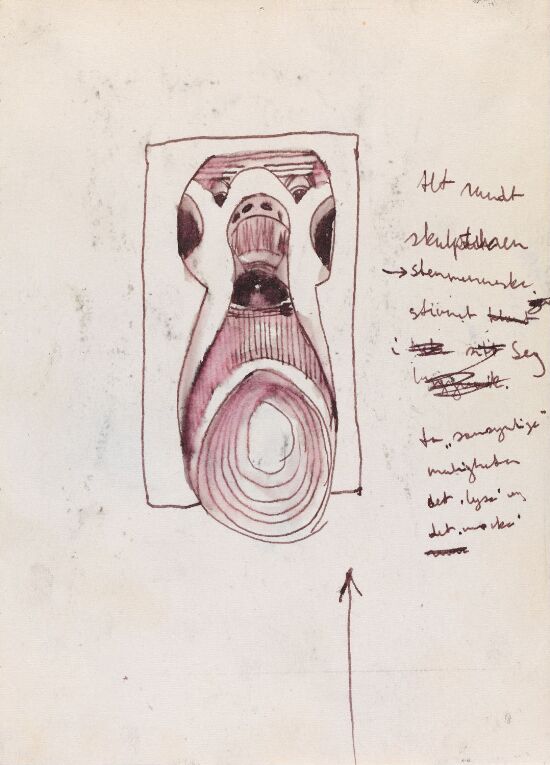 Alt rundt
skulpturen
→ stenmenneske.
stivnet
i seg
to "sansynlige"
muligheter
det "lyse" og
det "mørke"